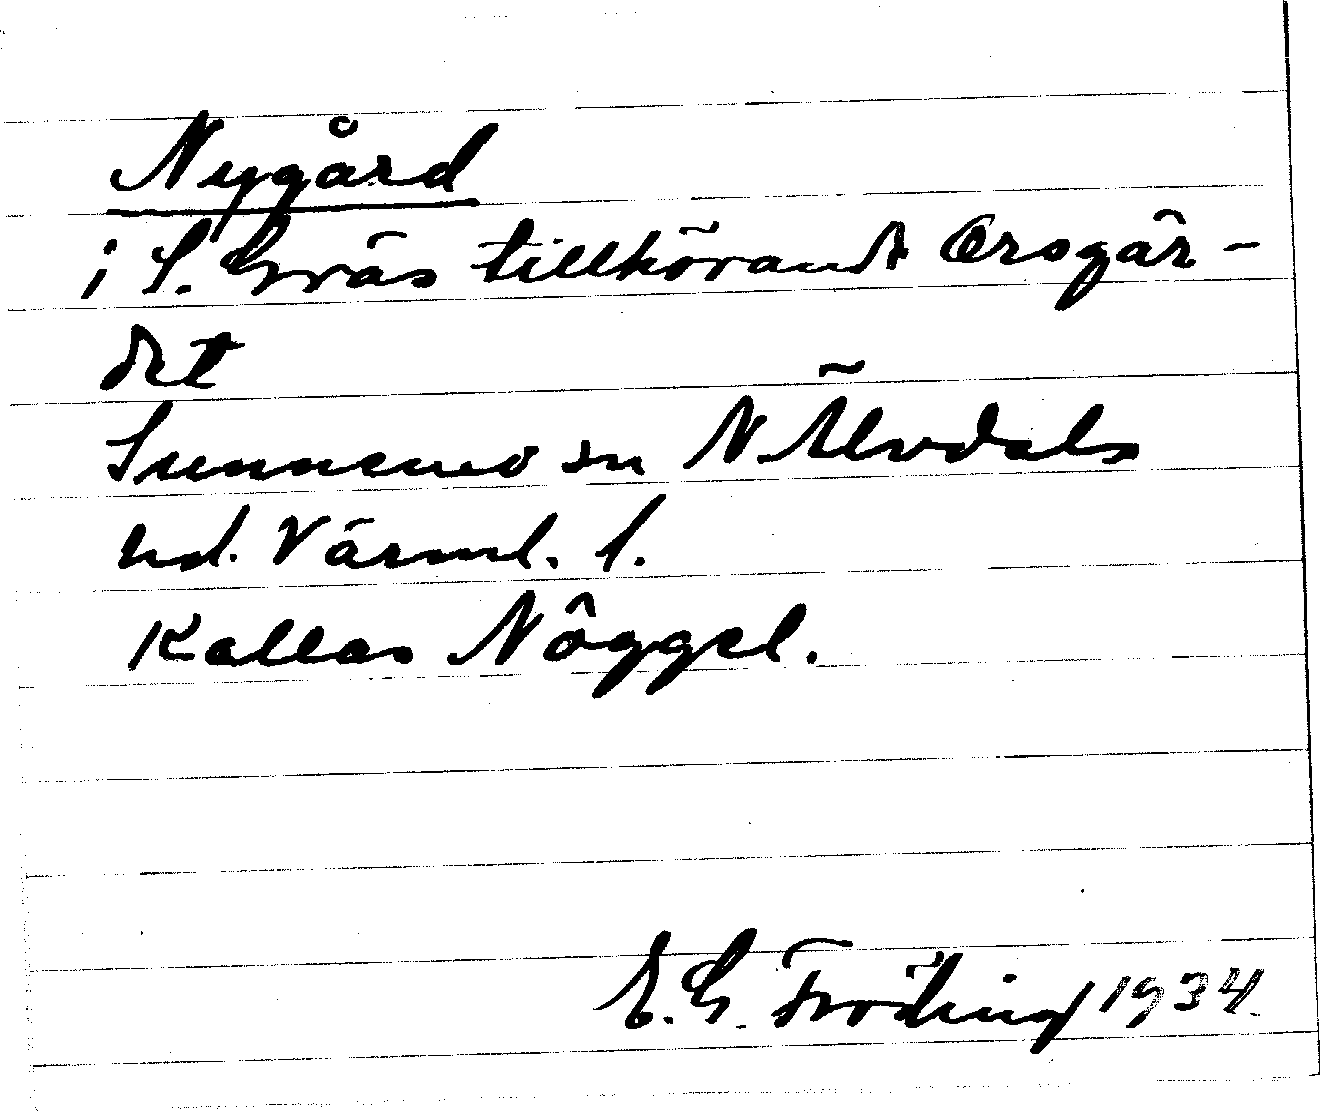 Nygård
i S. Gräs tillhörande Orsgär-
det
Sunnemo sn N. Älvdals
hd. Värml. l.
Kallas Nôggel.
E. G. Fröding 1934